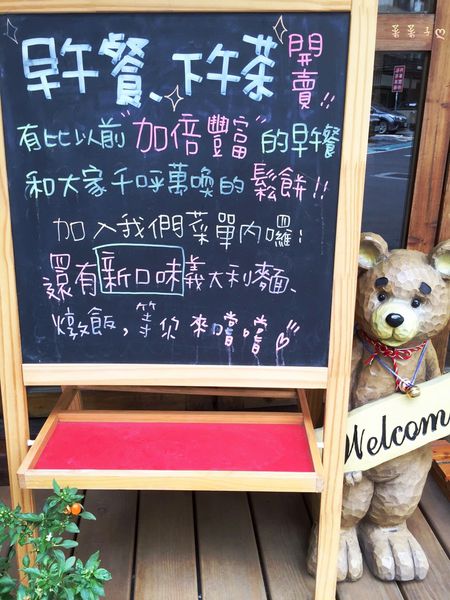 早午餐、下午茶 開賣!!
有比以前"加倍豐富"的早午餐
和大家千呼萬喚的 鬆餅!!
加入我們菜單內囉!
還有新口味義大利麵、
燉飯,等你來嚐嚐
Welcom